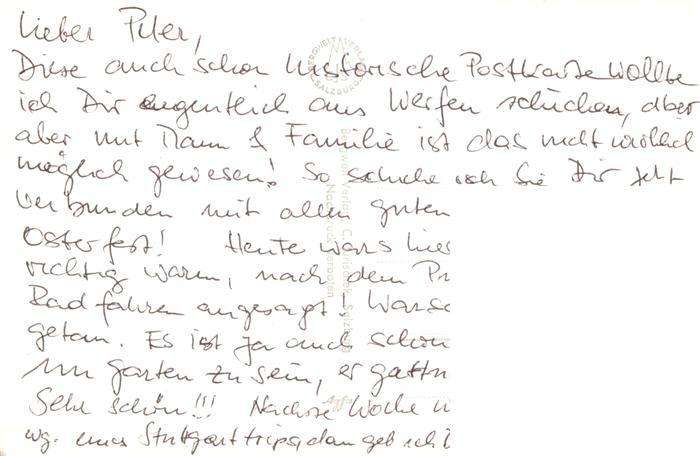 Lieber Peter,
Diese auch schon historische Postkarte wollte
ich Dir eigentlich aus Werfen schicken, aber
aber mit Mann & Familie ist das nicht wirklich
möglich gewesen! So schicke ich Sie Dir jetzt
verbunden mit allen guten
Osterfest! Heute wars hier
richtig warm, nach dem
Rad fahren angesagt!
getan. Es ist ja auch schon
im Garten zu sein, er
Sehr schön!!! Nächste Woche
wg. eines Stuttgart trips, dann geb ich